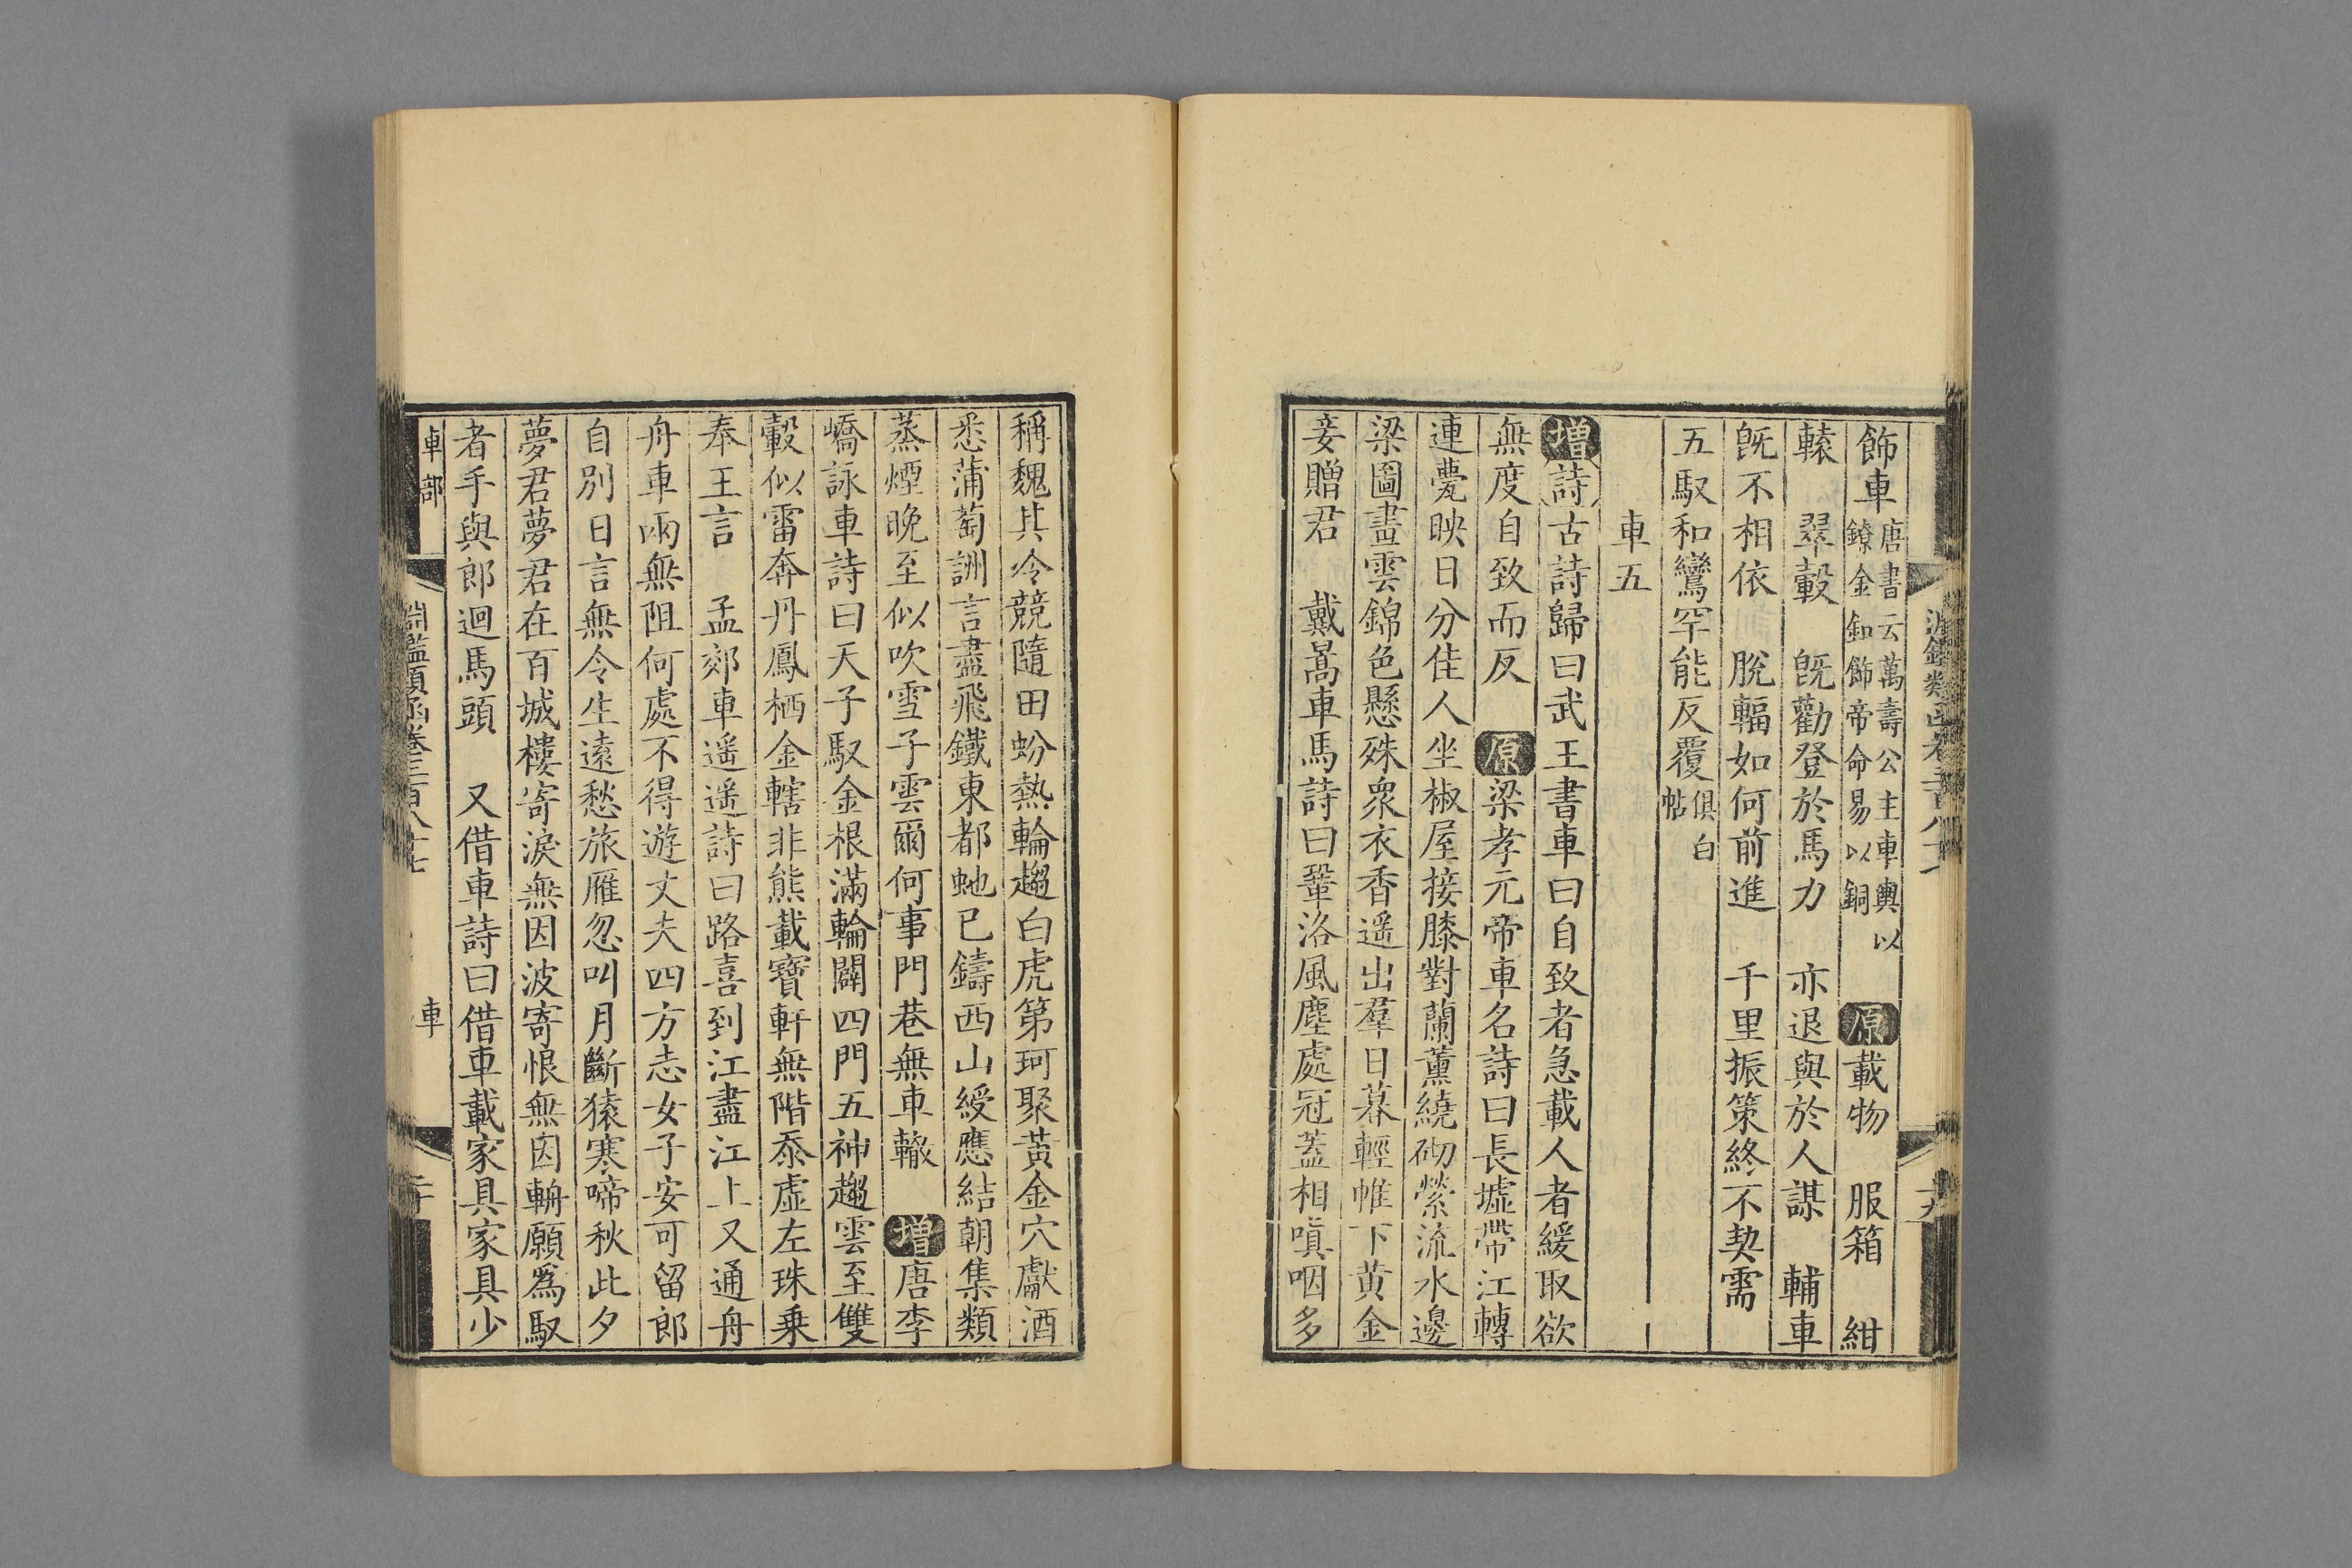 飾車唐書云萬壽公主車輿以鐐金釦飾帝命易以銅 原載物 服箱 紺
轅 翠轂 旣勸登於馬力 亦退與於人謀 輔車
旣不相依 脫輻如何前進 千里振策終不契需
五馭和鸞罕能反覆俱白帖
車五
增詩古詩歸曰武王書車曰自致者急載人者緩取欲
無度自致而反 原梁孝元帝車名詩曰長墟帶江轉
連甍映日分佳人坐椒屋接膝對蘭薰繞砌縈流水邊
梁圖畫雲錦色懸殊衆衣香遥出羣日暮輕帷下黃金
妾贈君 戴暠車馬詩曰鞏洛風塵處冠蓋相嗔咽多
稱魏其冷競隨田蚡熱輪趨白虎第珂聚黃金穴獻酒
悉蒲萄詶言盡飛鐵東都虵已鑄西山綬應結朝集類
蒸煙晚至似吹雪子雲爾何事門巷無車轍 增唐李
嶠詠車詩曰天子馭金根滿輪闢四門五神趨雲至雙
轂似雷奔丹鳳栖金轄非熊載寶軒無階忝虛左珠乗
奉王言 孟郊車遥遥詩曰路喜到江盡江上又通舟
舟車兩無阻何處不得遊丈夫四方志女子安可留郎
自別日言無令生遠愁旅雁忽叫月斷猿寒啼秋此夕
夢君夢君在百城樓寄淚無因波寄恨無因輈願爲馭
者手與郎迴馬頭 又借車詩曰借車載家具家具少
車部 淵鑑類函卷三百八十七 車 二十